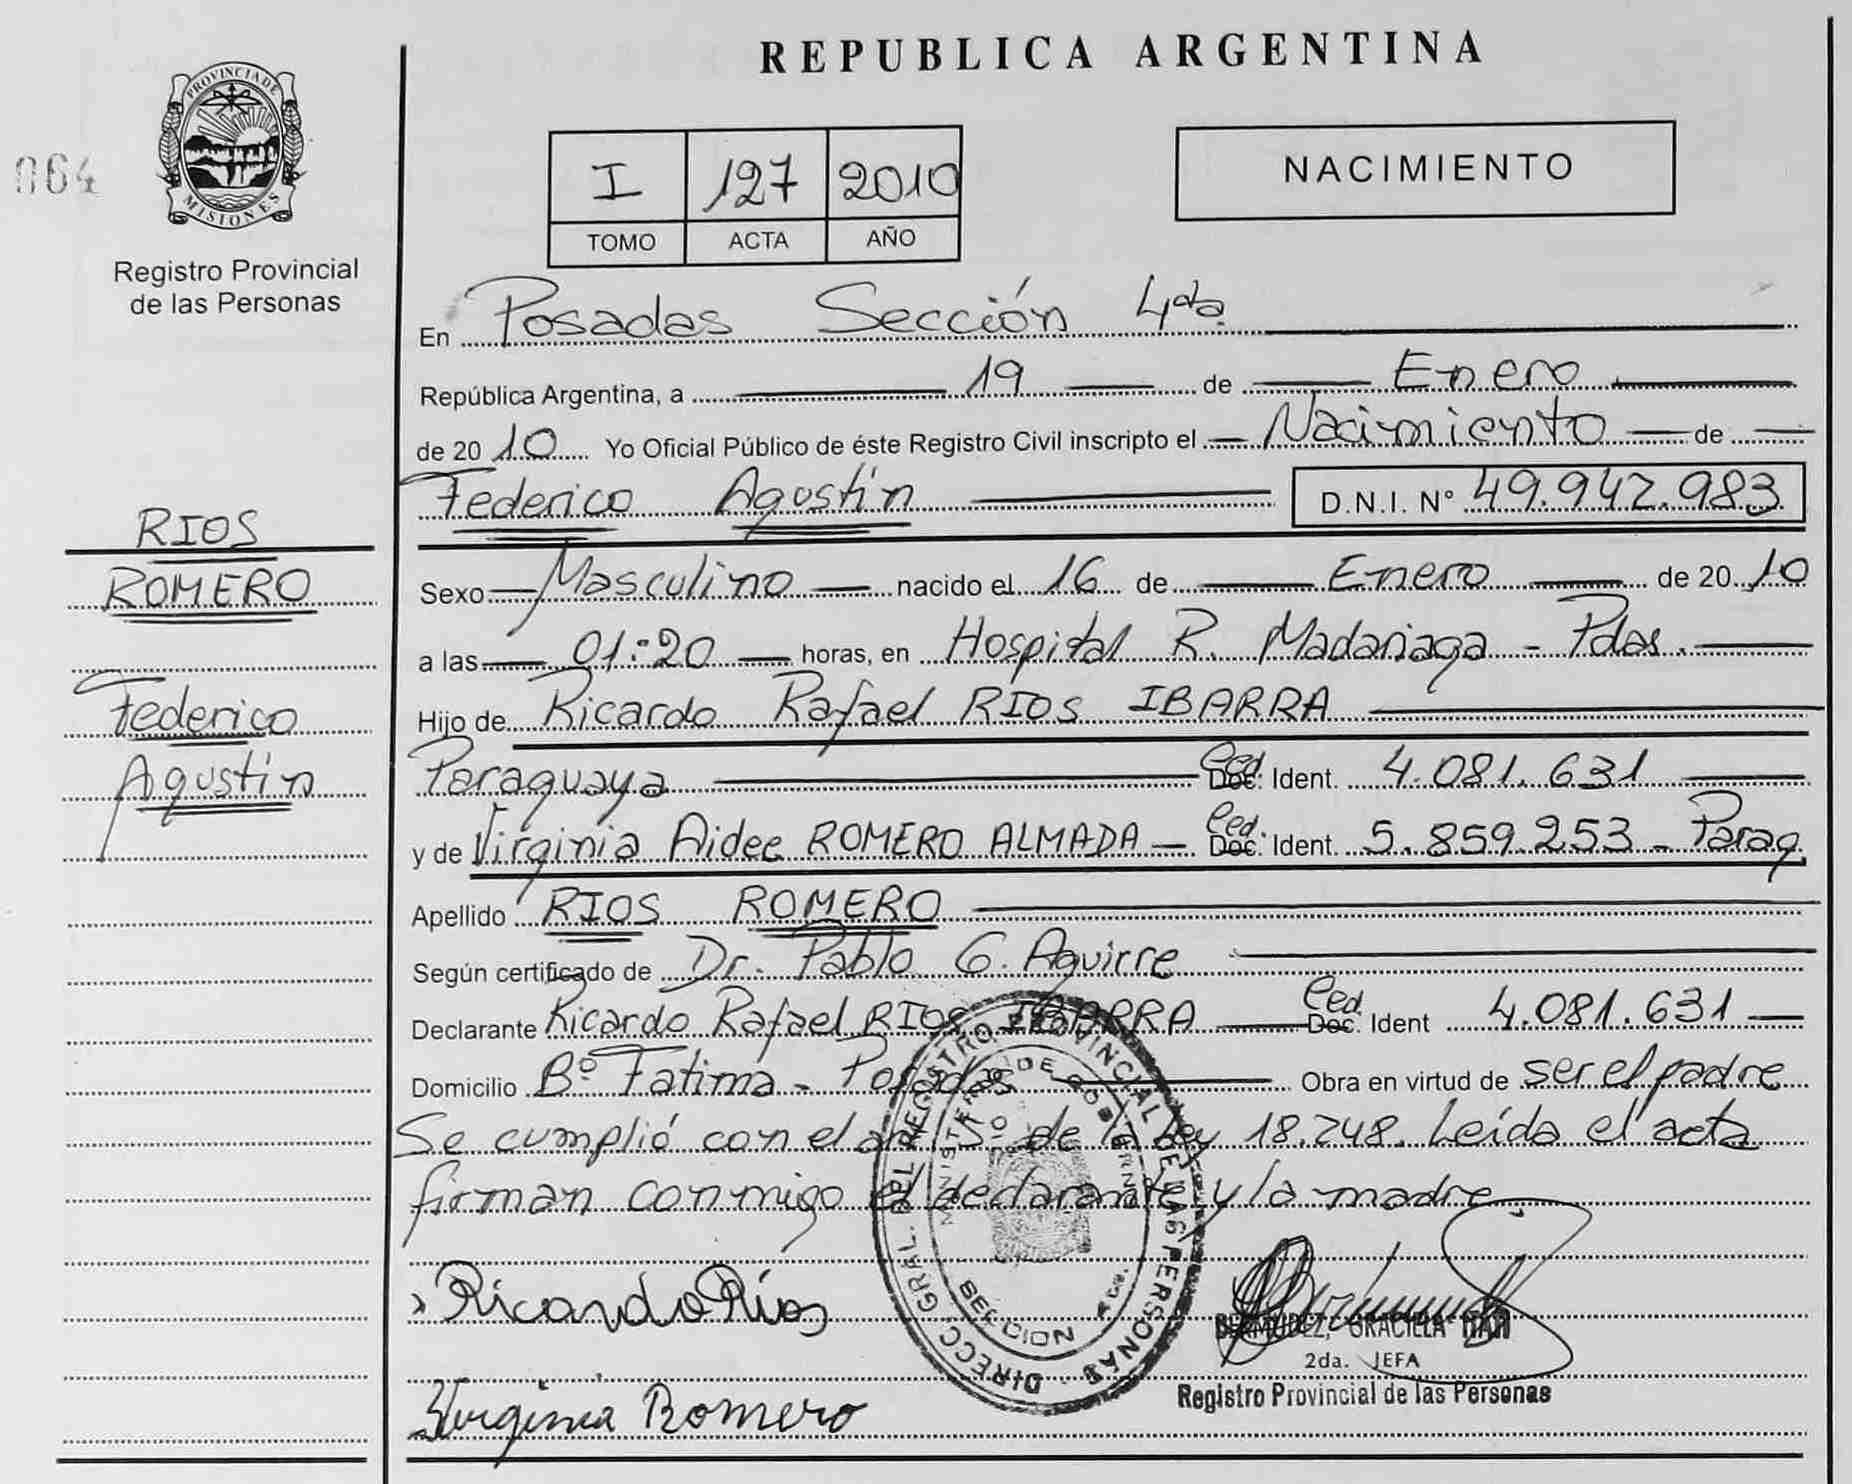 REPUBLICA ARGENTINA
PROVINCIA DE
MISIONES
064
Registro Provincial
de las Personas
I 127 2010
TOMO ACTA AÑO
NACIMIENTO
En Posadas Sección 4ta.
República Argentina, a 19 de Enero
de 2010 Yo Oficial Público de éste Registro Civil inscripto el Nacimiento de
Federico Agustín D.N.I. Nº 49.942.983
RIOS
ROMERO
Federico
Agustín
Sexo Masculino nacido el 16 de Enero de 2010
a las 01:20 horas, en Hospital R. Madariaga - Pdas.
Hijo de Ricardo Rafael RIOS IBARRA
Paraguaya Ced. Doc. Ident. 4.081.631
y de Virginia Aidee ROMERO ALMADA Ced. Doc. Ident. 5.859.253 - Parag.
Apellido RIOS ROMERO
Según certificado de Dr. Pablo G. Aguirre
Declarante Ricardo Rafael RIOS IBARRA Ced. Doc. Ident 4.081.631
Domicilio Bº Fatima - Posadas Obra en virtud de ser el padre
Se cumplió con el art 5º de la Ley 18.248. Leída el acta
firman conmigo el declarante y la madre
DIRECC. GRAL. DEL REGISTRO PROVINCIAL DE LAS PERSONAS
MINISTERIO DE GOBIERNO
SECCION 4ta.
Ricardo Ríos
BERMUDEZ, GRACIELA
2da. JEFA
Registro Provincial de las Personas
Virginia Romero